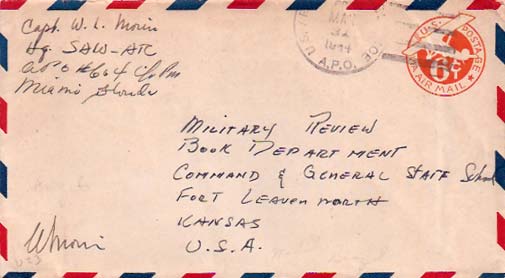 Capt. W. L. Morin
Hq. SAW-ATC
A.P.O #604 c/o Pm
Miami Florida
MAY
1944
U.S.
A.P.O.
U.S. POSTAGE
6¢
VIA AIR MAIL
Military Review
Book Department
Command & General Staff School
Fort Leavenworth
Kansas
U.S.A.
WMorin